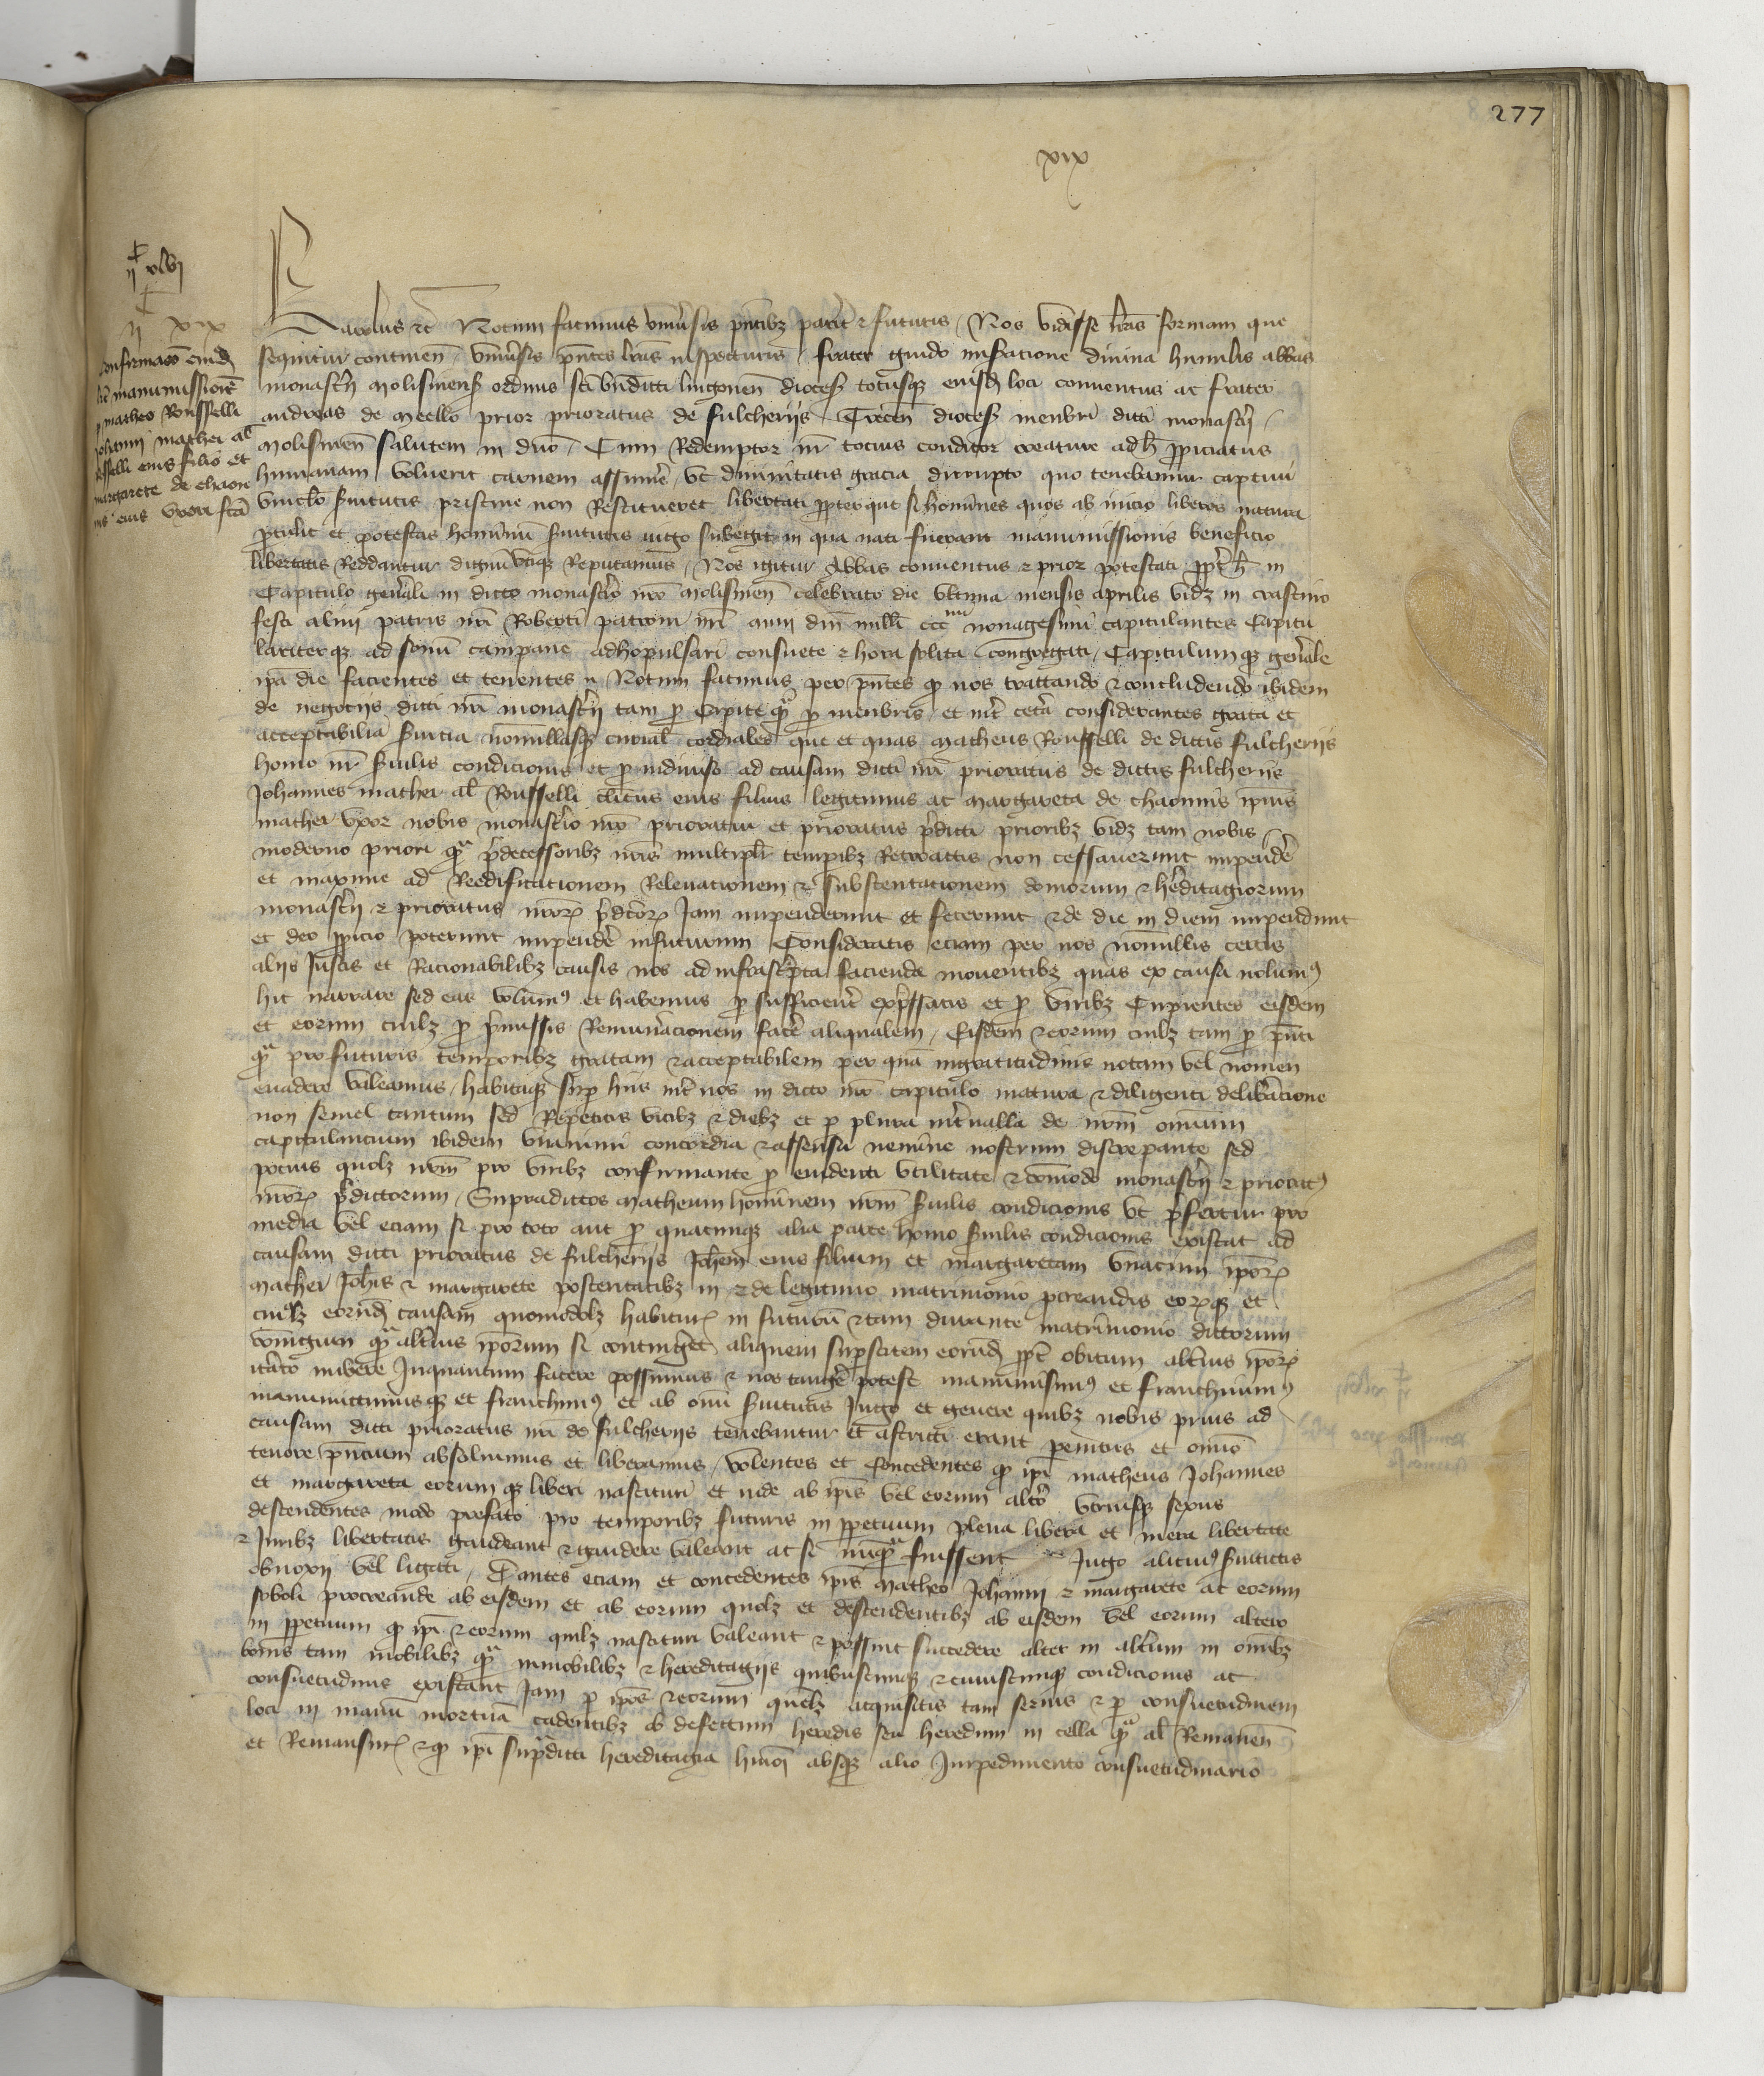 277
xix
c
ii xlvj
c
ii xix
Confirmacō cuiusd
manumissionē
matheo Rousselli
Johanni mathei al
Rousselli eius filio et
margarete de chaon
eius uxori fcā
Karolus etc Notum facimus univsis pntibz parit̄ et futuris / Nos vidisse lrās formam que
sequitur continen̄ / univsis pntes lrās inspecturis / frater guido miseracione divina humilis abbas
monastij molismens ordinis sci bndicti lingonen dioces totusqz eiusd loci conventus ac frater
andreas de meello prior prioratus de fulcheriis Trecen dioces menbri dicti monastij /
Molismen Salutem in dno / Cum Redemptor nr tocius conditor creature adh ppiciatus
humanam voluerit carnem assumē / ut divinitatis gracia dirrupto quo tenebamur captivi
vinclo svitutis pristine non Restitueret libertati ppterque si homines quos ab inicio liberos natura
ptulit et potestas hominū svitutis iugo subegit in qua nati fuerant manumissionis beneficio
libertatis Reddantur dignū utiqz Reputamus / Nos igitur Abbas conventus et prior potestati ppt h in
Capitulo genāli in dicto monastio nro molismen celebrato die ultima mensis aprilis vidz in crastino
festi almi patris nri Roberti patroni nri anni dni milli ccc mo nonagesimi capitulantes Capitu
lariterqz ad sonū campane adhopulsari consuete et hora solita congregati / Capitulumqz genale
ipa die facientes et tenentes / Notum facimus per pntes qp nos tractando et concludendo ibidem
de negociis dicti nri monastij tam p Capite qa p menbris / et int cetā considerantes grata et
acceptabilia svicia nonnullasqz curial cordiales que et quas Matheus Rousselli de dictis fulcheriis
homo nr svilis condicionis et p indiviso ad causam dicti nri prioratus de dictis fulcheriis
Johannes mathei al Rousselli clicus eius filius legitimus ac margareta de chaomis ipius
mathei uxor nobis monastio nro prioratui et prioratus pdicti prioribz vidz tam nobis
moderno priori qa pdecessoribz nris multipli tempibz Retroactis non cessaverunt impendē
et maxime ad Reedificationem Relevationem et substentacionem domorum et heditagiorum
monastij et prioratus nror pdcor Jam impenderunt et fecerunt et de die in diem impendunt
et deo ppicio poterunt impendē in futurum Consideratis eciam per nos nonnullis certis
aliis Justis et Racionabilibz causis nos ad infrascpta facienda moventibz quas ex causa nolum9
hic narrare sed eas volum9 et habemus p sufficient expssatis et p viribz Cupientes eisdem
et eorum cuilz p pmissis Remunacionem facē aliqualem / Eisdem et eorum cuilz tam p pnti
qa pro futuris temporibz gratam et acceptabilem per quā ingratitudinis notam vel nomen
evadere valeamus / habitaqz sup hiis int nos in dicto nro capitulo matura et diligenti delibacione
non semel tantum sed Repetitis vicibz et diebz et p plura intvalla de nrm omnium
capitulantium ibidem unanimi concordia et assensu nemine nostrum discrepante sed
pocius quolz nrm pro viribz confirmante p evidenti utilitate et comodo monastij et priorat9
nror pdictorum / Supradictos matheum hominem nrm svilis condicionis ut pfertur pro
media vel eciam si pro toto aut p quacunqz alia parte homo svilis condicionis existat ad
causam dicti prioratus de fulcheriis Johem eius filium et margaretam unacum ipor
mathei Johis et margarete posteritatibz in et de legitimo matrimonio pcreandis eorqz et
cuilz eorud causam quomodolz habitur in futurū et tam durante matrimonio dictorum
coniugum qa altius iporum si contingēt aliquem supstitem eorud ppt obitum altius ipor
itato nubere Inquantum facere possumus et nos tangē potest manumisim9 et franchivim9
manumittimusqz et franchim9 et ab omi svitutis Jugo et genere quibz nobis prius ad
causam dicti prioratus nri de fulcheriis tenebantur et astricti erant penitus et omio
tenore pncium absolvimus et liberamus / volentes et Concedentes qp ipi matheus Johannes
et margareta eorumqz liberi nascituri et inde ab ipis vel eorum altō utriusqz sexus
descendentes modo prefato pro temporibz futuris in ppetuum plena libera et mera libertate
et Juribz libertatis gaudeant et gaudere valeant ac si nuqa fuissent Jugo alicui9 svitutis
obnoxii vel ligati / Dantes eciam et concedentes ipis matheo Johanni et margarete ac eorum
soboli procreande ab eisdem et ab eorum quolz et descendentibz ab eisdem vel eorum altero
in ppetuum qp ipi et eorum quilz nascituri valeant et possint succedere alter in altum in omibz
bonis tam mobilibz qa immobilibz et hereditagiis quibuscunqz et cuiuscunqz condicionis ac
consuetudinis existant Jam p ipos et eorum quelz acquisitis tam serius et p consuetudinem
loci in manū mortuā cadentibz ob defectum heredis seu heredum in cella qa al Remanen
et Remansur et qp ipi supdicti hereditagia huioi absqz alio Impedimento consuetudinario